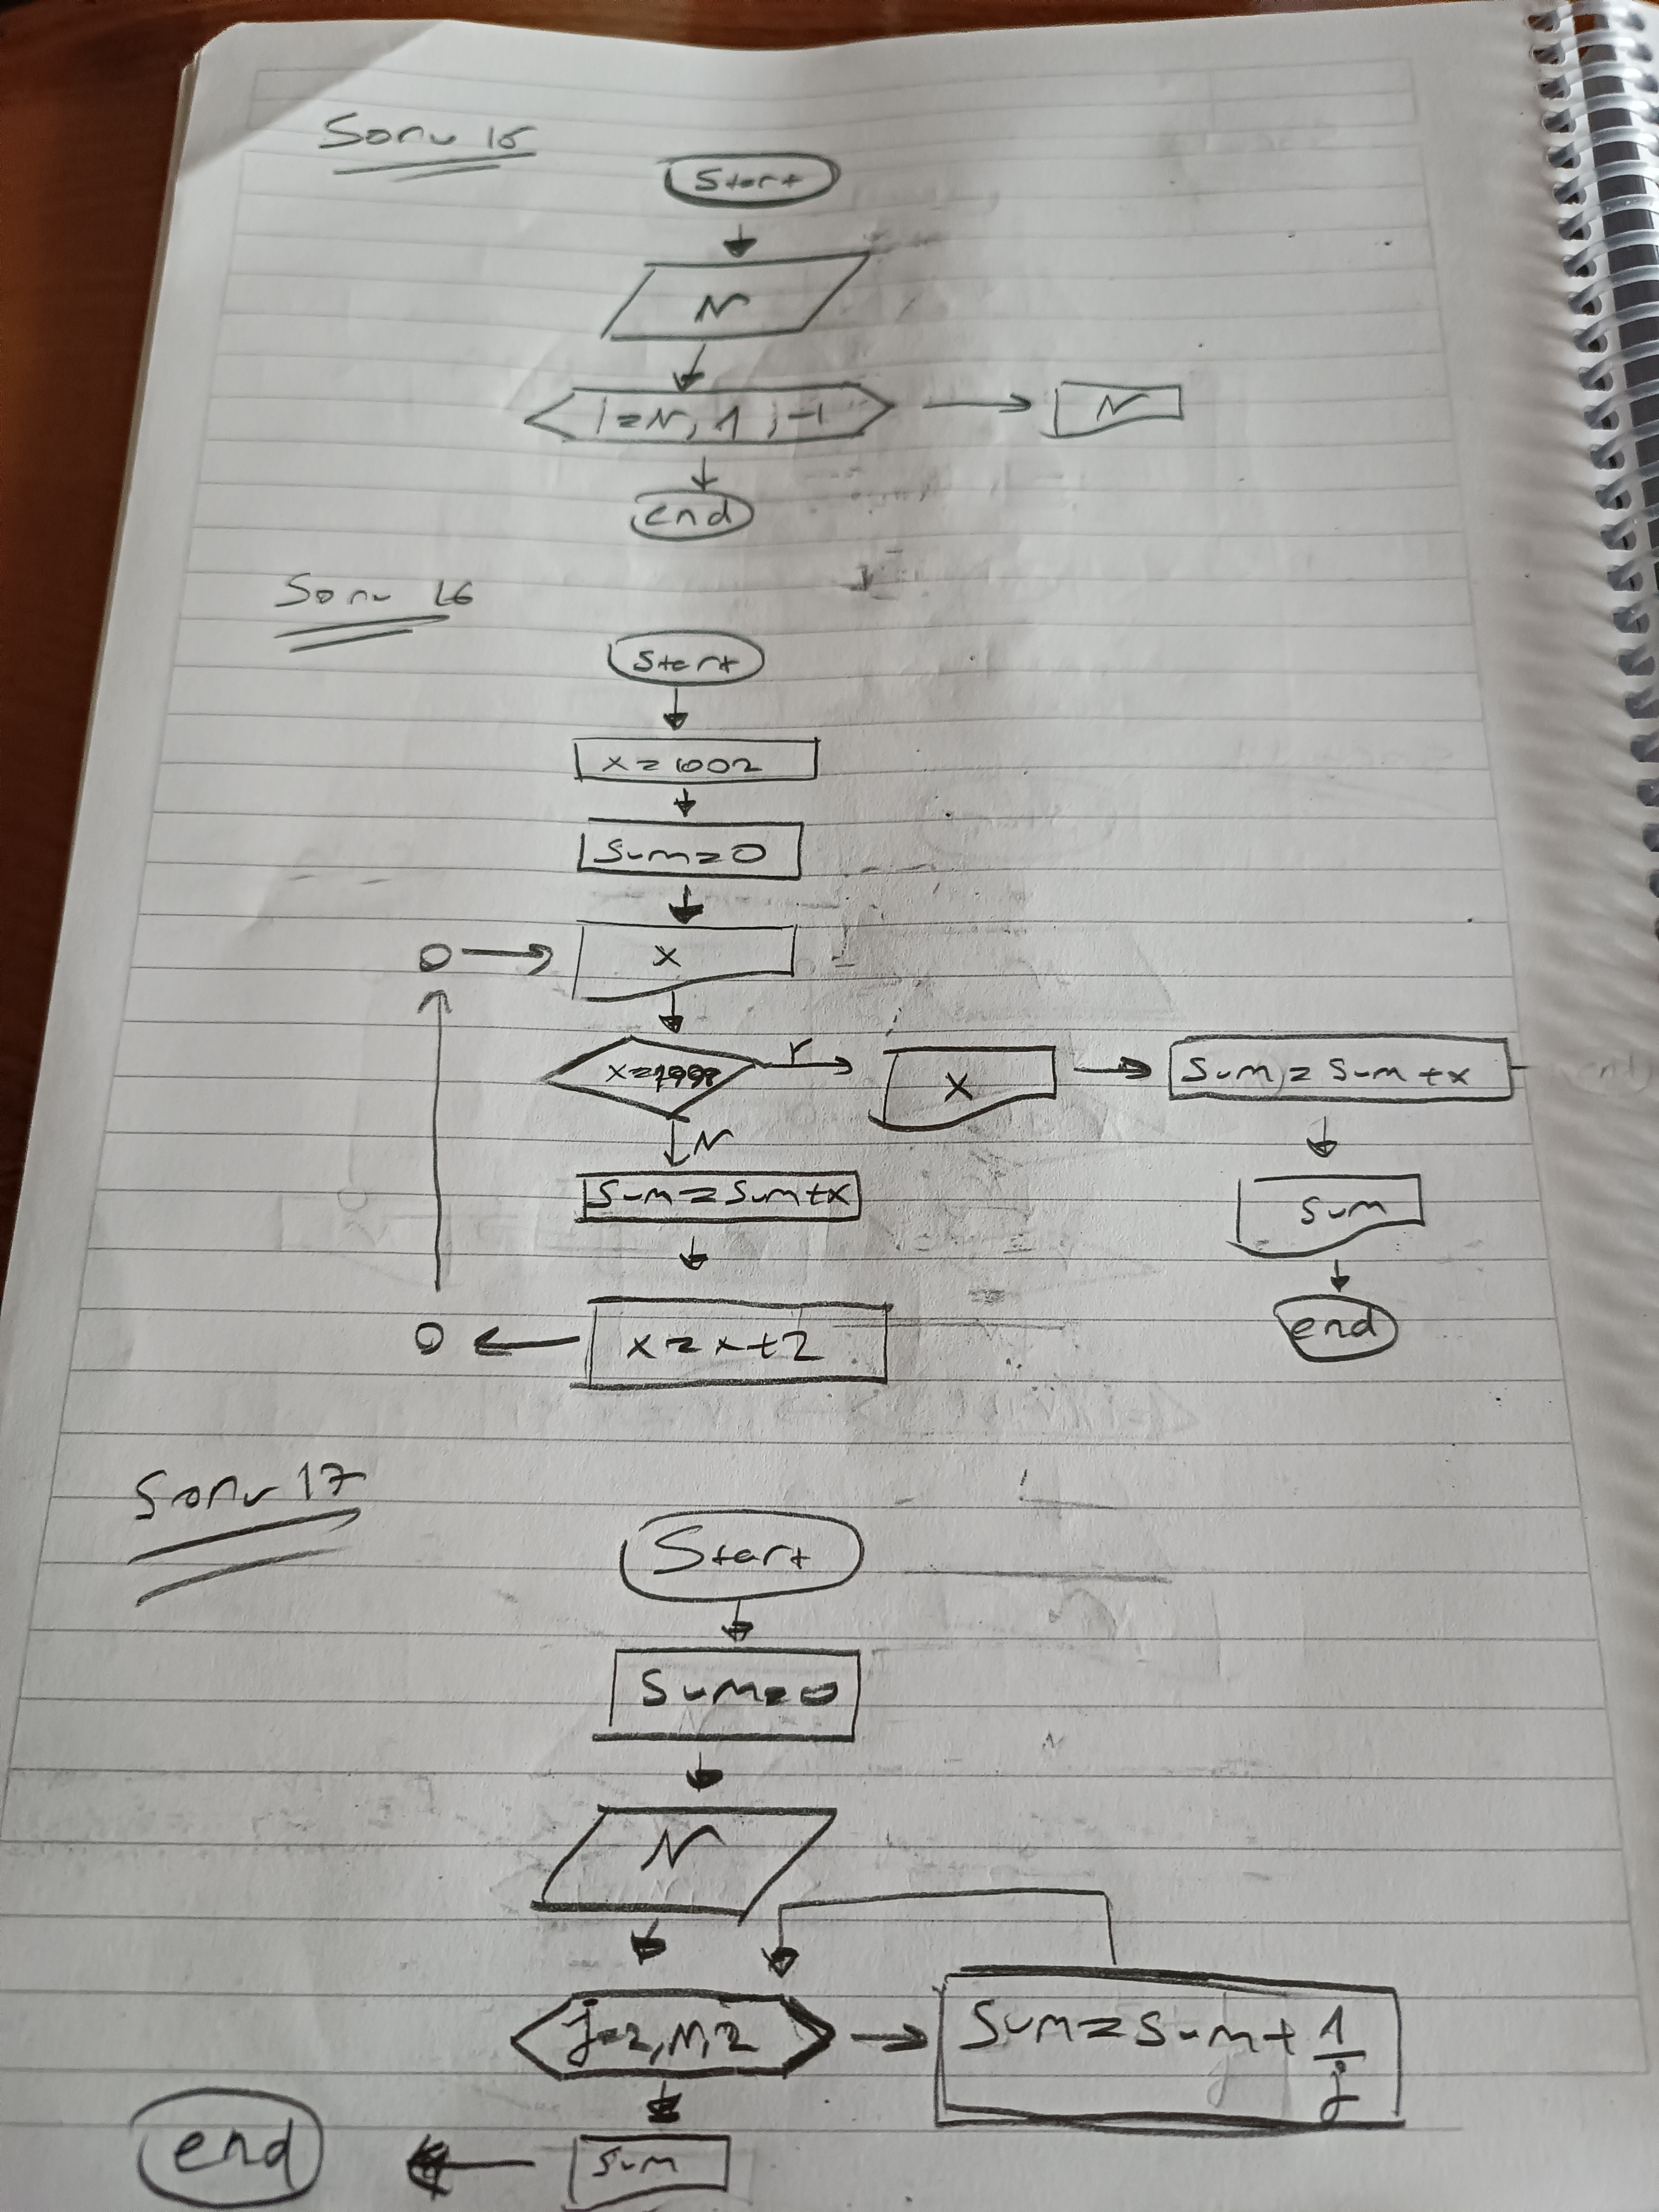 Soru 15
Start
N
i=N, 1, -1
N
end
Soru 16
Start
x=1002
Sum=0
x
x=1998 Y x Sum=Sum+x
N
Sum=Sum+x Sum
x=x+2 end
Soru 17
Start
Sum=0
N
j=2,N,2 Sum=Sum+1/j
end Sum